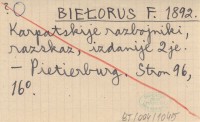 ? BIEŁORUS F. 1892.
Karpatskije razbojniki,
razskaz, izdanije 2je.
— Pietierburg, Stron 96,
16°.